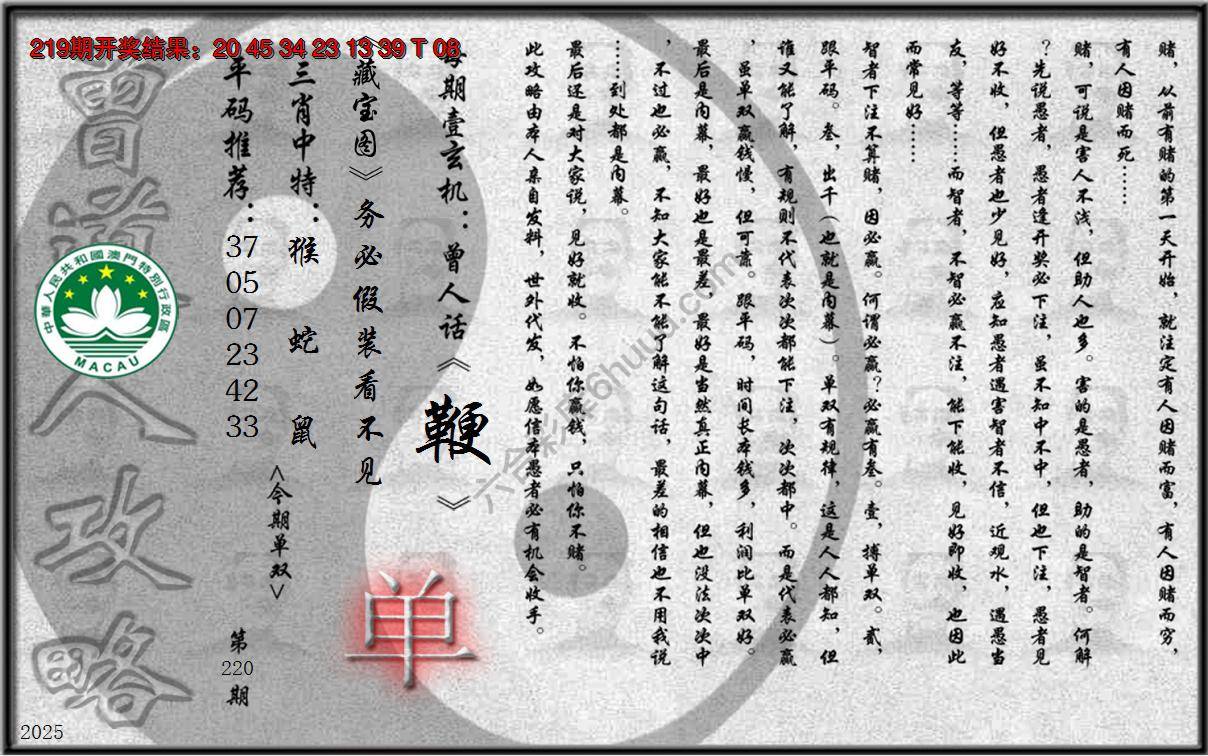 219期开奖结果：20 45 34 23 13 39 T 08
赌，从前有赌的第一天开始，就注定有人因赌而富，有人因赌而穷，
有人因赌而死……
赌，可说是害人不浅，但助人也多。害的是愚者，助的是智者。何解
？先说愚者，愚者逢开奖必下注，虽不知中不中，但也下注，愚者见
好不收，但愚者也少见好，应知愚者遇害智者不信，近观水，遇愚当
友，等等……而智者，不智必赢不注，能下能收，见好即收，也因此
而常见好……
智者下注不算赌，因必赢。何谓必赢？必赢有叁。壹，搏单双。贰，
跟平码。叁，出千（也就是内幕）。单双有规律，这是人人都知，但
谁又能了解，有规则不代表次次都能下注，次次都中。而是代表必赢
，虽单双赢钱慢，但可靠。跟平码，时间长本钱多，利润比单双好。
最后是内幕，最好也是最差，最好是当然真正内幕，但也没法次次中
，不过也必赢，不知大家能不能了解这句话，最差的相信也不用我说
……到处都是内幕。
最后还是对大家说，见好就收。不怕你赢钱，只怕你不赌。
此攻略由本人亲自发料，世外代发，如愿信本愚者必有机会收手。
每期壹玄机：曾人话《鞭》
《藏宝图》务必假装看不见
三肖中特：猴 蛇 鼠
平码推荐：37 05 07 23 42 33
<今期单双>
单
第220期
曾道人攻略
中華人民共和國澳門特別行政區
MACAU
六合彩库6huuu.com
2025